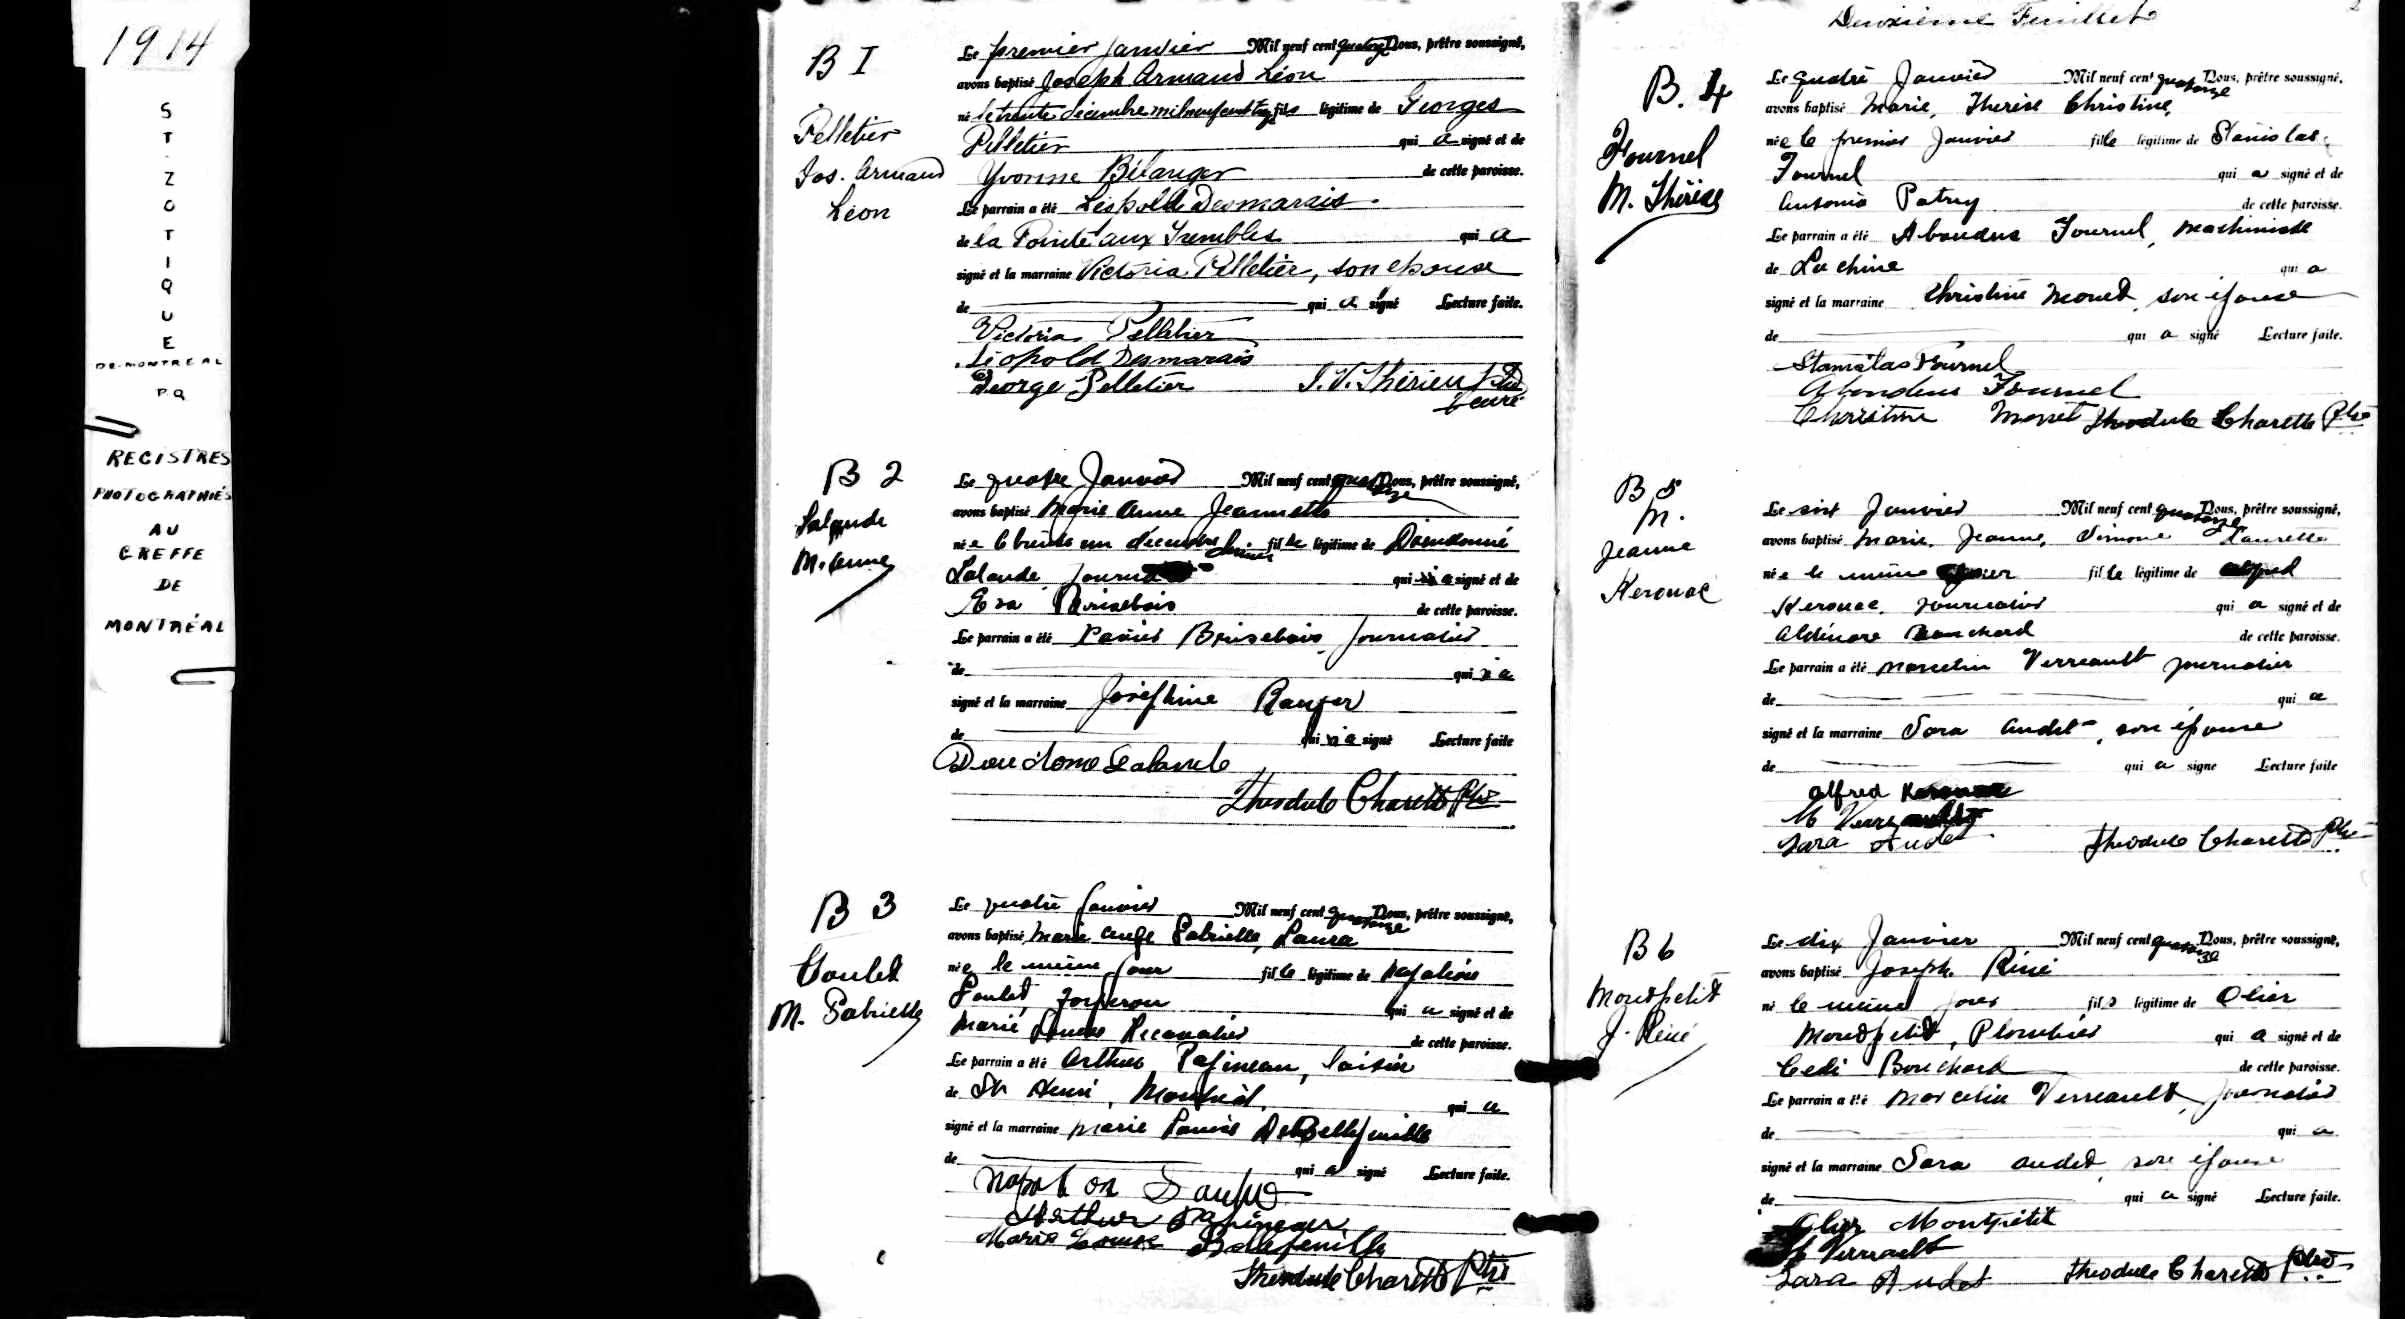 1914
ST ZOTIQUE
DE-MONTRÉAL
PQ
REGISTRES
PHOTOGRAPHIÉS
AU
GREFFE
DE
MONTRÉAL
B 1
Pelletier
Jos. Armand
Léon
Le premier janvier Mil neuf cent quatorze Nous, prêtre soussigné,
avons baptisé Joseph Armand Léon
né le trente décembre mil neuf cent treize fils légitime de Georges
Pelletier qui a signé et de
Yvonne Bélanger de cette paroisse.
Le parrain a été Léopold Desmarais
de la Pointe aux Trembles qui a
signé et la marraine Victoria Pelletier, son épouse
de qui a signé Lecture faite.
Victoria Pelletier
Léopold Desmarais
George Pelletier J. V. Thérien Ptre
curé
B 2
Lalande
M. Anne
Le quatre Janvier Mil neuf cent quatorze Nous, prêtre soussigné,
avons baptisé Marie Anne Jeannette
née le trente un décembre dernier fille légitime de Dieudonné
Lalande, qui a signé et de
Eva Brisebois de cette paroisse.
Le parrain a été Brisebois, journalier
de qui n'a
signé et la marraine Joséphine Ranger
de qui n'a signé Lecture faite
Dieudoné Lalande
Theodule Charette Ptre
B 3
Goulet
M. Gabrielle
Le quatre Janvier Mil neuf cent quatorze Nous, prêtre soussigné,
avons baptisé Marie Ange Gabrielle, Laura
née le même jour fille légitime de Napoléon
Goulet, forgeron qui a signé et de
Marie Louise Lecavalier de cette paroisse.
Le parrain a été Arthur Papineau, laitier
de St Henri, Montréal, qui a
signé et la marraine Marie Louise DeBellefeuille
de qui a signé Lecture faite.
Napoleon Goulet
Arthur Papineau
Marie Louise Bellefeuille
Theodule Charette Ptre
Deuxième Feuillet
B. 4
Fournel
M. Thérèse
Le quatre Janvier Mil neuf cent quatorze Nous, prêtre soussigné,
avons baptisé Marie, Thérèse Christine,
née le premier Janvier fille légitime de Stanislas
Fournel qui a signé et de
Antonia Patry de cette paroisse.
Le parrain a été Abondius Fournel, machiniste
de Lachine qui a
signé et la marraine Christine Monet, son épouse
de qui a signé Lecture faite.
Stanislas Fournel
Abondius Fournel
Christine Monet Theodule Charette Ptre
B 5
M.
Jeanne
Kerouac
Le sept Janvier Mil neuf cent quatorze Nous, prêtre soussigné,
avons baptisé Marie, Jeanne, Simone Laurette
née le même jour fille légitime de Alfred
Kerouac, journalier qui a signé et de
Bouchard de cette paroisse.
Le parrain a été Marcelin Verreault journalier
de qui a
signé et la marraine Sara Audet, son épouse
de qui a signé Lecture faite
Alfred Kerouac
M Verreault
Sara Audet Theodule Charette Ptre
B 6
Montpetit
J. Réné
Le dix Janvier Mil neuf cent quatorze Nous, prêtre soussigné,
avons baptisé Joseph Réné
né le même jour fils légitime de Olier
Montpetit, Plombier qui a signé et de
Bouchard de cette paroisse.
Le parrain a été Marcelin Verreault, journalier
de qui a
signé et la marraine Sara Audet, son épouse
de qui a signé Lecture faite.
Olier Montpetit
M Verreault
Sara Audet Theodule Charette Ptre